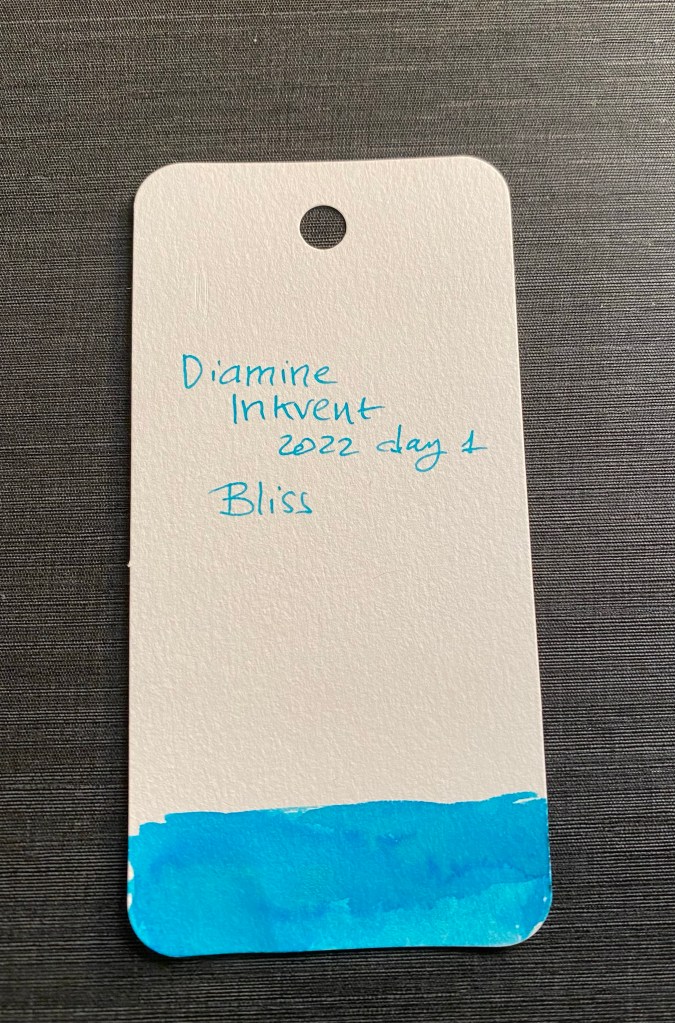 Diamine
Inkvent
2022 day 1
Bliss